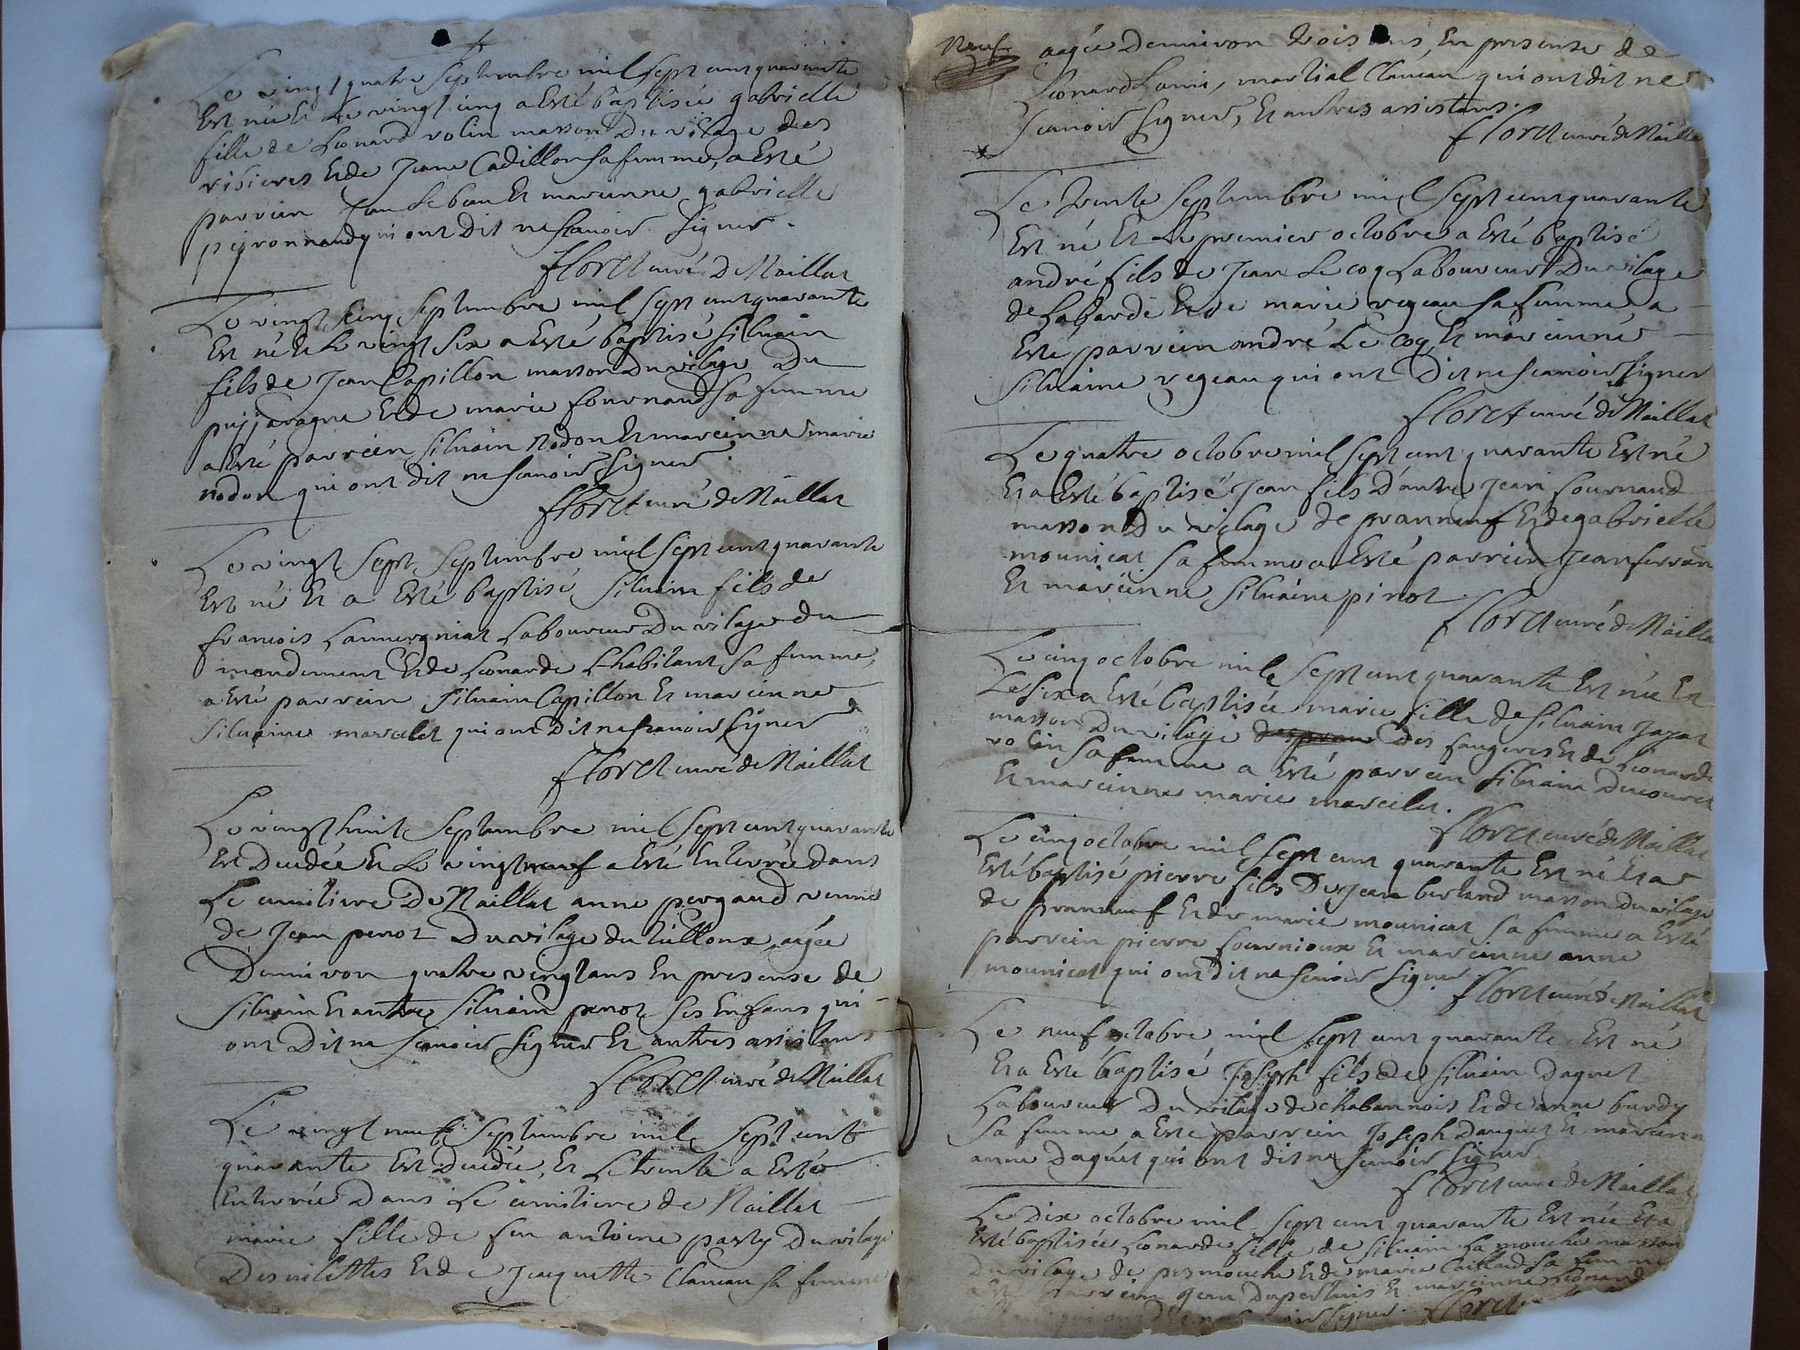 Le vingt quatre septembre mil sept cent quarante
Est née Et Le vingt cinq a Esté baptisée gabrielle
fille de Leonard volin masson Du vilage des
Et de Jeane Cadillon sa femme, a Esté
parrein Jean Et mareinne gabrielle
peyronnaud qui ont Dit ne scauoir signer.
floret curé De Naillat
Le vingt cinq septembre mil sept cent quarante
Est né Et Le vingt six a Esté baptisé siluain
fils de Jean Capillon masson Du vilage Du
Et de marie fournaud sa femme
a Esté parrein siluain nadon Et mareinne marie
nadon qui ont dit ne scauoir signer.
floret curé de Naillat
Le vingt sept septembre mil sept cent quarante
Est né Et a Esté baptisé siluain fils de
francois Lauuergniat Laboureur Du vilage du
mondement Et de Leonarde Lhabitant sa femme,
a Esté parrein siluain Capillon Et mareinne
siluaine marcelet qui ont Dit ne scauoir signer
floret curé de Naillat
Le vingt huit septembre mil sept cent quarante
Est Decedée Et Le vingt neuf a Esté Enterrée dans
Le cimitiere De Naillat anne pergaud veuue
de Jean penot Du vilage du tilloux, agée
Denuiron quatre vingt ans En presense de
siluain Et autre siluain penot ses Enfans qui
ont Dit ne scauoir signer Et autres assistans
floret curé de Naillat
Le vingt neuf septembre mil sept cent
quarante Est Decedée, Et Le trente a Esté
Enterrée Dans Le cimitiere de Naillat
marie fille de feu antoine Du vilage
Des vilettes Et de Jacquette Clameau sa femme
Neuf
agée Denuiron trois ans, En presense de
Leonard Lami, martial Clameau qui ont dit ne
scauoir signer, Et autres assistans.
floret curé de Naillat
Le trente septembre mil sept cent quarante
Est né Et Le premier octobre a Esté baptisé
andré fils de Jean Le coq Laboureur Du vilage
de Lagarde Et de marie regeau sa femme, a
Esté parrein andré Le coq Et mareinne
siluaine regeau qui ont Dit ne scauoir signer
floret curé de Naillat
Le quatre octobre mil sept cent quarante Est né
Et a Esté baptisé Jean fils D'autre Jean fournaud
masson Du vilage de pranneuf Et de gabrielle
mounicat sa femme a Esté parrein Jean
Et mareinne siluaine pinot.
floret curé de Naillat
Le cinq octobre mil sept cent quarante Est née Et
Le six a Esté baptisée marie fille de siluain
masson Du vilage Des faugeres Et de Leonarde
volin sa femme a Esté parrein siluain
Et mareinne marie marcelet.
floret curé de Naillat
Le cinq octobre mil sept cent quarante Est né Et a
Esté baptisé pierre fils De Jean berland masson Du vilage
de pranneuf Et de marie mounicat sa femme a Esté
parrein pierre fournioux Et mareinne anne
mounicat qui ont dit ne scauoir signer
floret curé de Naillat
Le neuf octobre mil sept cent quarante Est né
Et a Esté baptisé Joseph fils de siluain Daguet
Laboureur Du vilage de chabannois Et de anne burdy
sa femme a Esté parrein Joseph Daguet Et mareinne
anne Daguet qui ont dit ne scauoir signer
floret curé de Naillat
Le Dix octobre mil sept cent quarante Est née Et a
Esté baptisée Leonarde fille de siluain La mouche masson
Du vilage de puymouche Et de marie Caillaud sa femme
parrein Jean Dupertuis Et mareinne Leonarde
qui ont Dit ne scauoir signer. floret